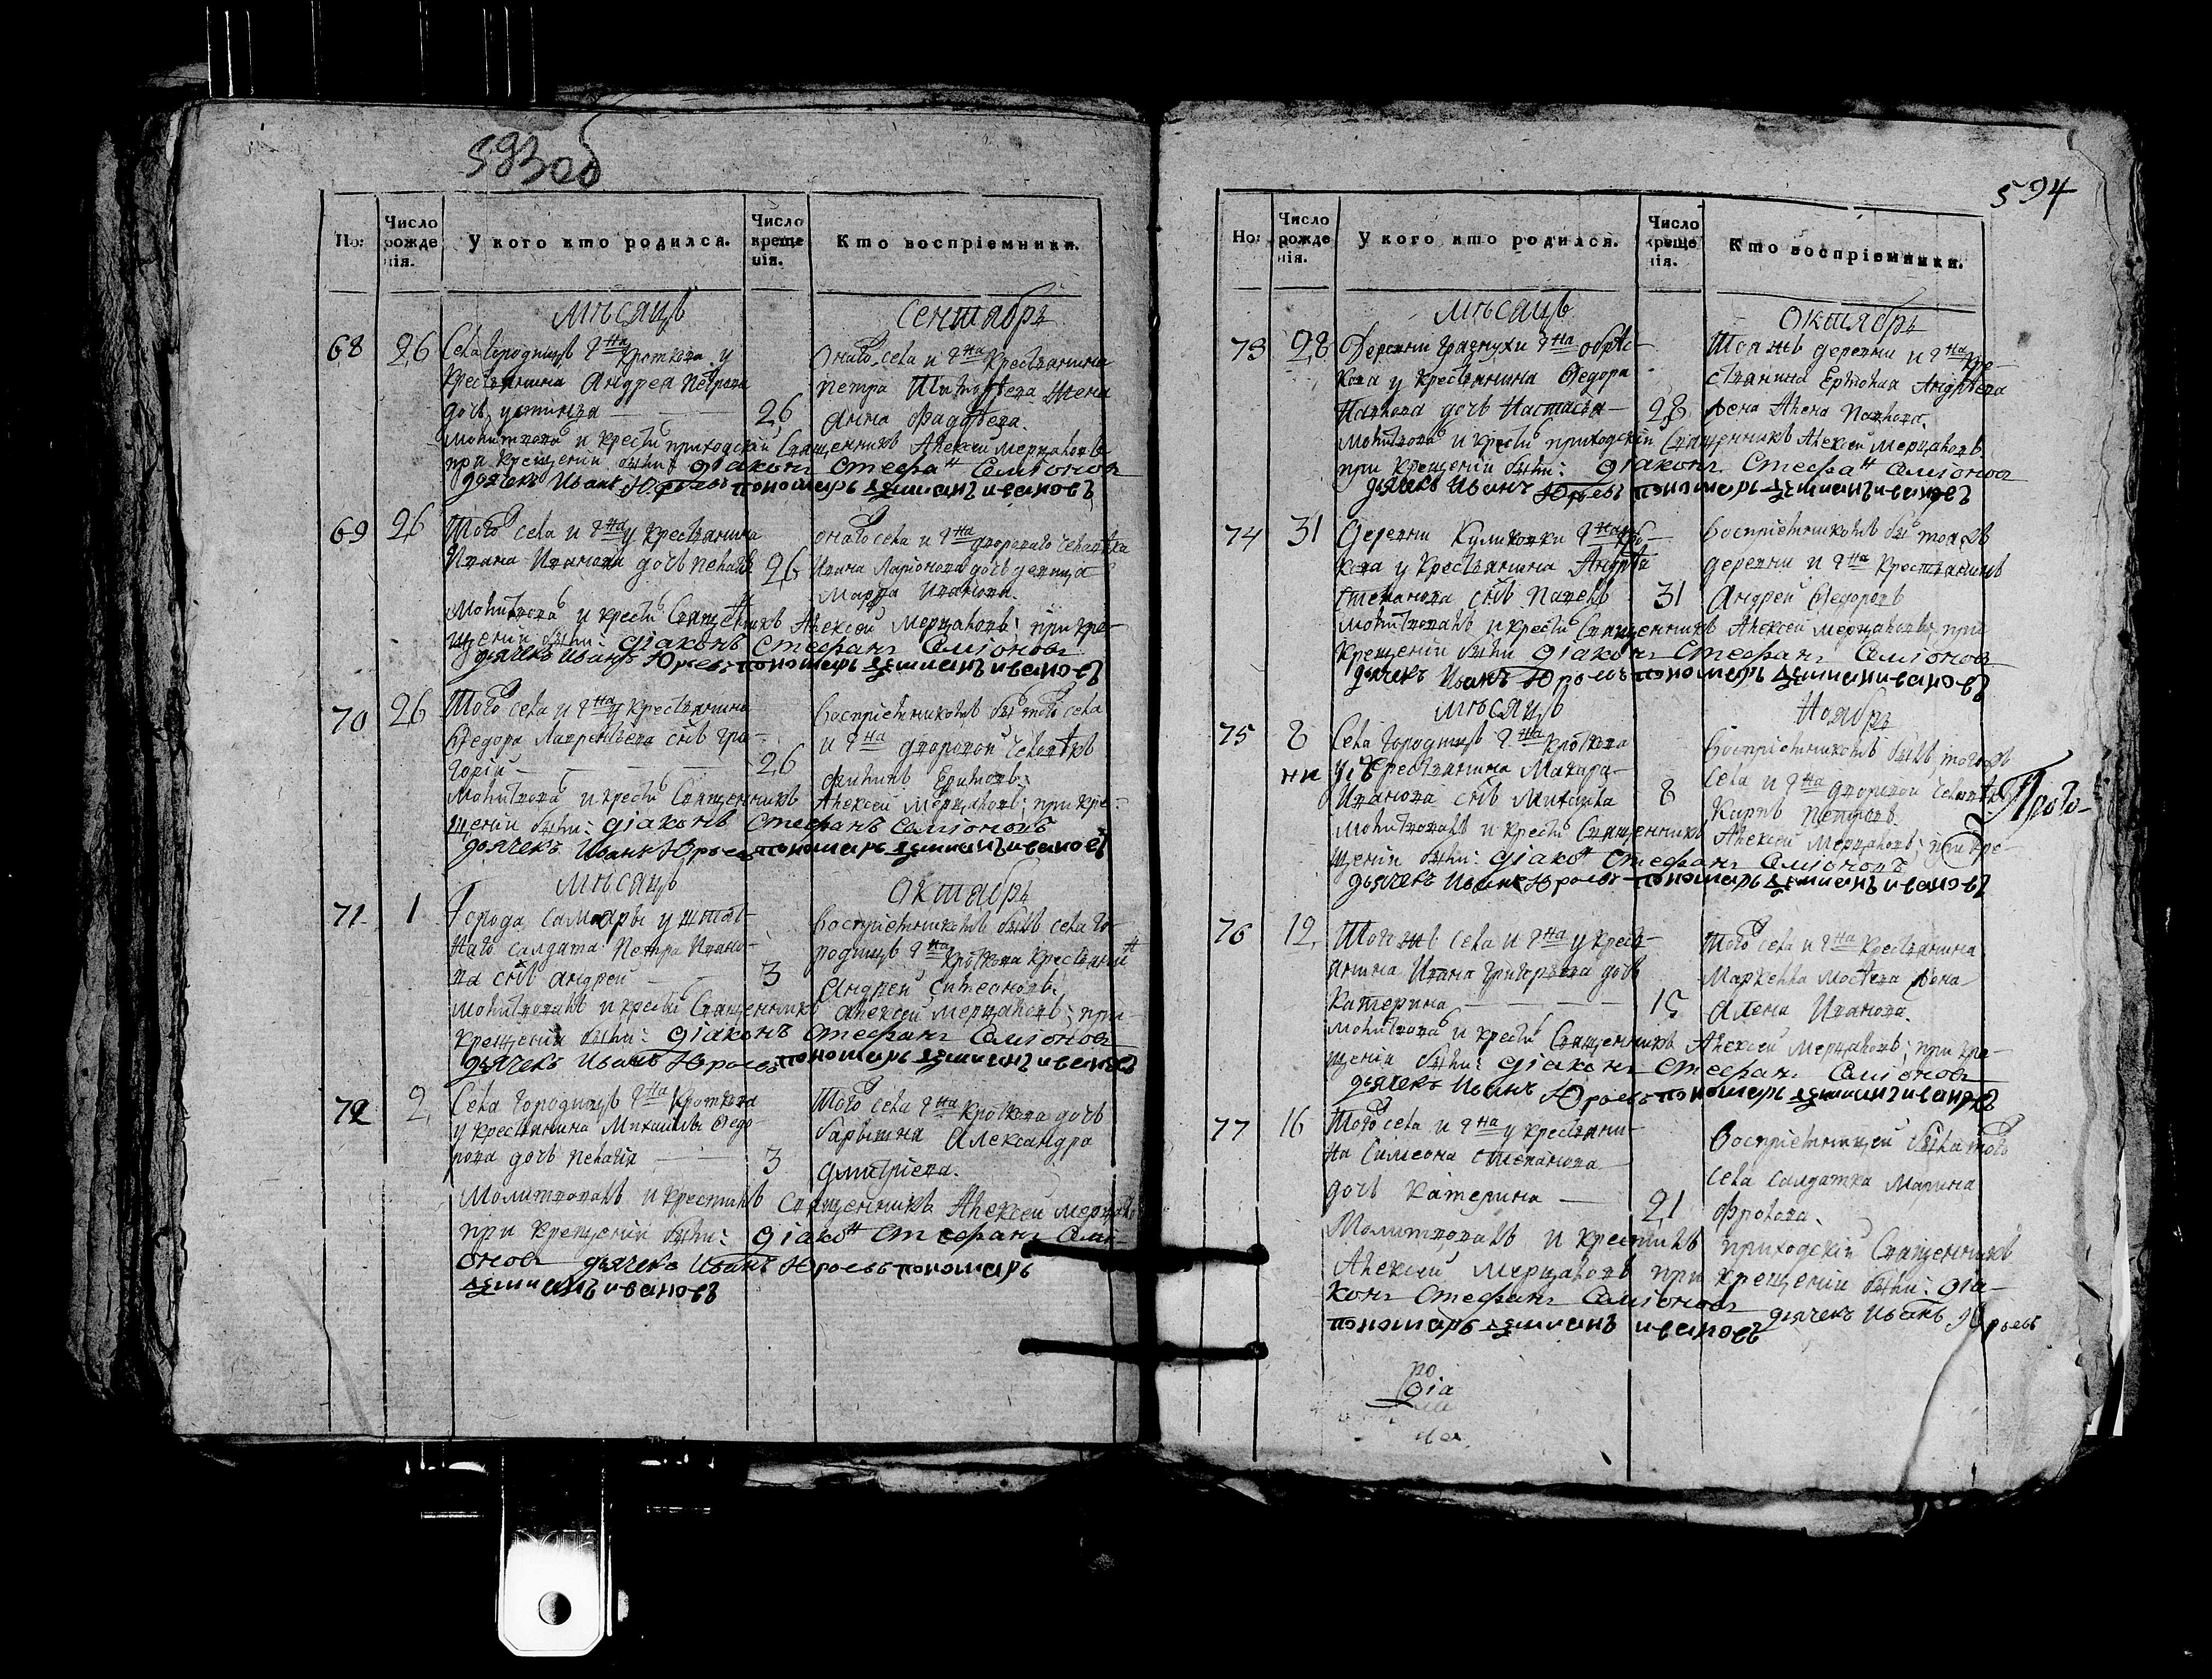 593об
Но:
Число рожденія.
У кого кто родился.
Число крещенія.
Кто воспріемники.
мѣсяцъ сентябрь
68 26 Села Городищъ гна Кроткова у
крестьянина Андрея Петрова
дочь устинья
26
онаго села и гна крестьянина
петра жена
анна Фадѣева.
молитвовалъ и крестилъ приходскій Священникъ Алексей мерцаловъ
при крещеніи были: діаконъ Стефанъ Самсоновъ
дьячекъ Иванъ Юрьевъ пономарь демианъ ивановъ
69 26 Того села и гна у крестьянина
Ивана Иванова дочь пелагея 26
онаго села и гна двороваго человѣка
Ивана Ларионова дочь девица
Марфа Иванова.
Молитвовалъ и крестилъ Священникъ Алексей мерцаловъ; при кре-
щеніи были: діаконъ Стефанъ Самсоновъ
дьячекъ Иванъ Юрьевъ пономарь демианъ ивановъ
70 26 Того села и гна у крестьянина
Федора Лаврентьева сынъ гри-
горій 26
Воспріемникомъ былъ того села
и гна дворовой человѣкъ
филипъ Ефимовъ.
Молитвовалъ и крестилъ Священникъ Алексей мерцаловъ; при кре-
щеніи были: діаконъ Стефанъ Самсоновъ
дьячекъ Иванъ Юрьевъ пономарь демианъ ивановъ
мѣсяцъ октябрь
71 1 Города Самары у штат-
наго салдата Петра Ивано-
ва сынъ андрей 3
Воспріемникомъ былъ села Го-
родищъ гна Кроткова крестьянинъ
Андрей Симеоновъ.
молитвовалъ и крестилъ Священникъ алексей мерцаловъ; при
крещеніи были: діаконъ Стефанъ Самсоновъ
дьячекъ Иванъ Юрьевъ пономарь демианъ ивановъ
72 2 Села Городищъ гна Кроткова
у крестьянина Михаилы Федо-
рова дочь пелагія 3
Того села гна Кроткова дочь
барышна Александра
дмитріева.
Молитвовалъ и крестилъ священникъ Алексей мерцаловъ
при крещеніи были: діаконъ Стефанъ Самс-
оновъ дьячекъ Иванъ Юрьевъ пономарь
демианъ ивановъ
594
Но:
Число рожденія.
У кого кто родился.
Число крещенія.
Кто воспріемники.
мѣсяцъ октябрь
73 28 Деревни грязнухи гна обрѣс-
кова у крестьянина Федора
Павлова дочь Настасья 28
Тояжъ деревни и гна кре-
стьянина Ермолая Андрѣева
жена Алена Павлова.
молитвовалъ и крестилъ приходскій Священникъ Алексей мерцаловъ
при крещеніи были: діаконъ Стефанъ Самсоновъ
дьячекъ Иванъ Юрьевъ пономарь демианъ ивановъ
74 31 Деревни Куликовки гна
кова у крестьянина Андрѣя
степанова сынъ Павелъ 31
Воспріемникомъ былъ тояжъ
деревни и гна крестьянинъ
Андрей Федоровъ
молитвовалъ и крестилъ Священникъ Алексей мерцаловъ, при
крещеніи были діаконъ Стефанъ Самсоновъ
дьячекъ Иванъ Юрьевъ пономарь демианъ ивановъ
мѣсяцъ Ноябрь
75 8 Села Городищъ гна Кроткова
у крестьянина Макара
Иванова сынъ Михаила 8
Воспріемникомъ былъ тогожъ
села и гна дворовой человѣкъ
Карпъ Петровъ.
молитвовалъ и крестилъ Священникъ Алексей мерцаловъ; при кре-
щеніи были: діаконъ Стефанъ Самсоновъ
дьячекъ Иванъ Юрьевъ пономарь демианъ ивановъ
Прото-
76 12 Тогожъ села и гна у кресть-
янина Ивана Григорьева дочь
Катерина 15
Того села и гна крестьянина
жена
Алена Иванова.
молитвовалъ и крестилъ Священникъ Алексей мерцаловъ; при кре-
щеніи были: діаконъ Стефанъ Самсоновъ
дьячекъ Иванъ Юрьевъ пономарь демианъ ивановъ
77 16 Того села и гна у крестьяни-
на Симеона степанова
дочь Катерина 21
Воспріемницей была того
села салдатка Марина
Фролова.
Молитвовалъ и крестилъ приходскій Священникъ
Алексей мерцаловъ при крещеніи были: діа-
конъ Стефанъ Самсоновъ дьячекъ Иванъ Юрьевъ
пономарь демианъ ивановъ